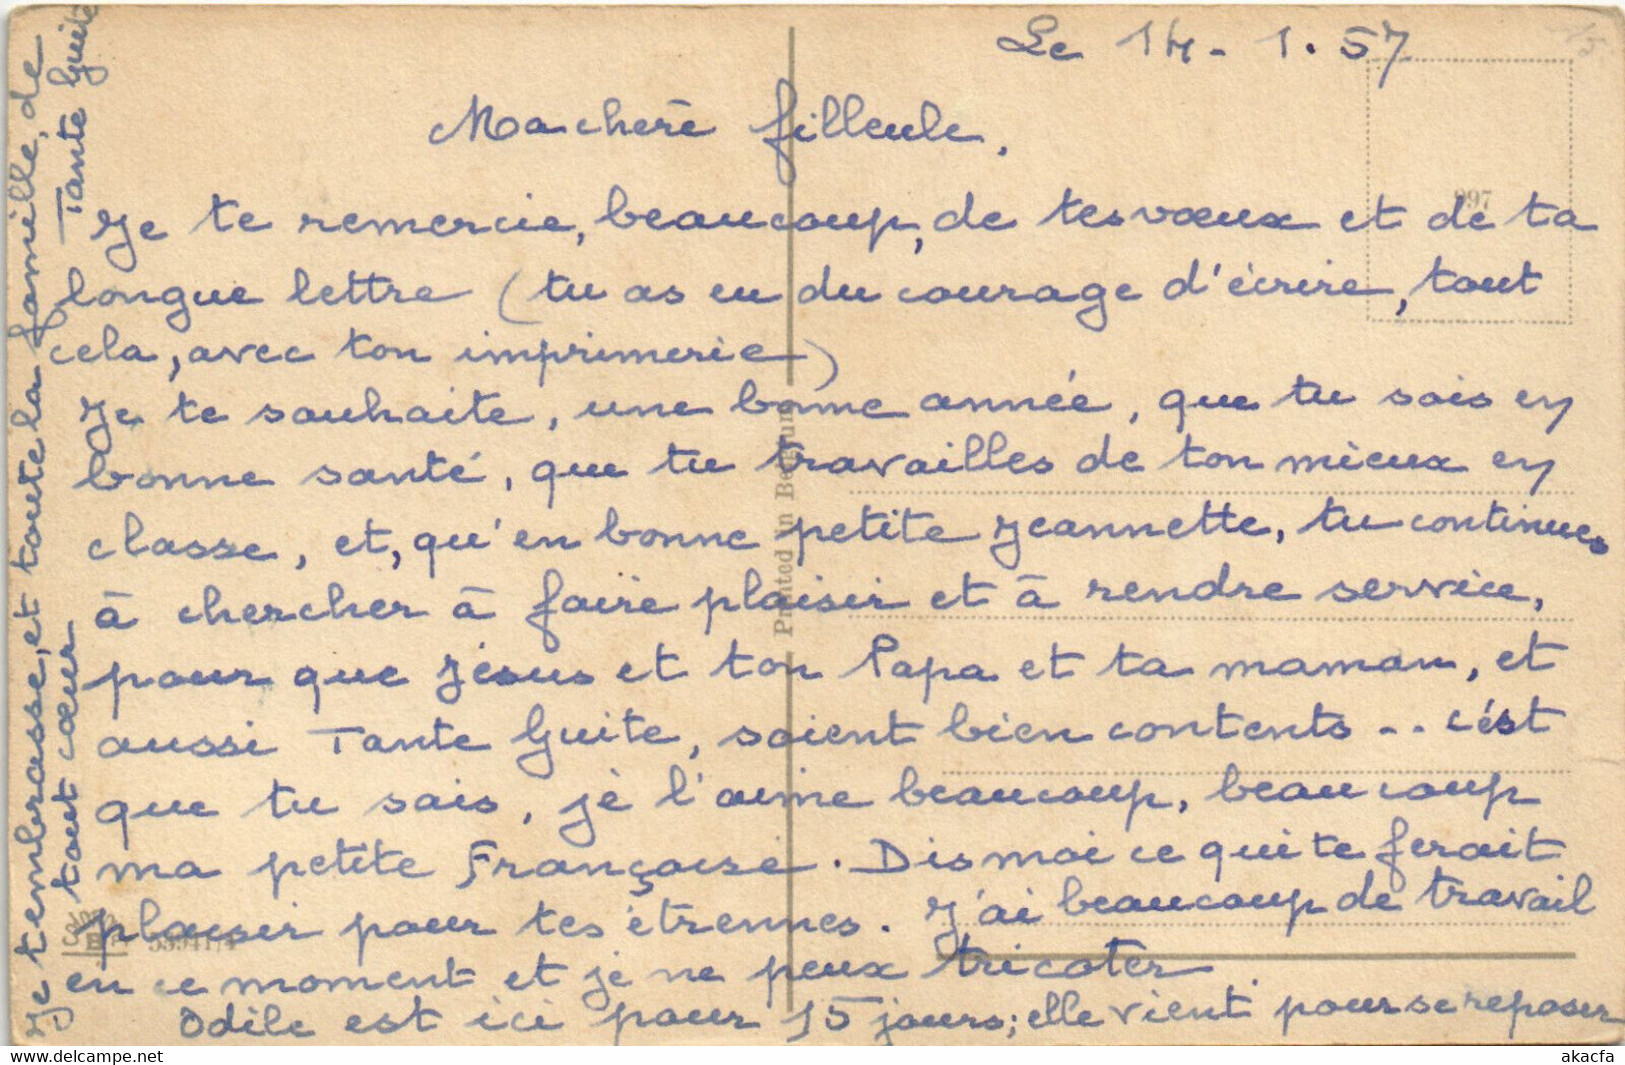 Le 14-1.57
Ma chère filleule,
Je te remercie, beaucoup, de tes vœux et de ta
longue lettre (tu as eu du courage d'écrire, tout
cela, avec ton imprimerie)
Je te souhaite, une bonne année, que tu sois en
bonne santé, que tu travailles de ton mieux en
classe, et, qu'en bonne petite Jeannette, tu continues
à chercher à faire plaisir et à rendre service,
pour que Jésus et ton Papa et ta maman, et
aussi Tante Guite, soient bien contents.. c'est
que tu sais, je l'aime beaucoup, beaucoup
ma petite Françoise. Dis moi ce qui te ferait
plaisir pour tes étrennes. J'ai beaucoup de travail
en ce moment et je ne peux tricoter.
Odile est ici pour 15 jours; elle vient pour se reposer
Je t'embrasse, et toute la famille, de
tout cœur
Tante Guite
997
Printed in Belgium
delcampe.net
akacfa